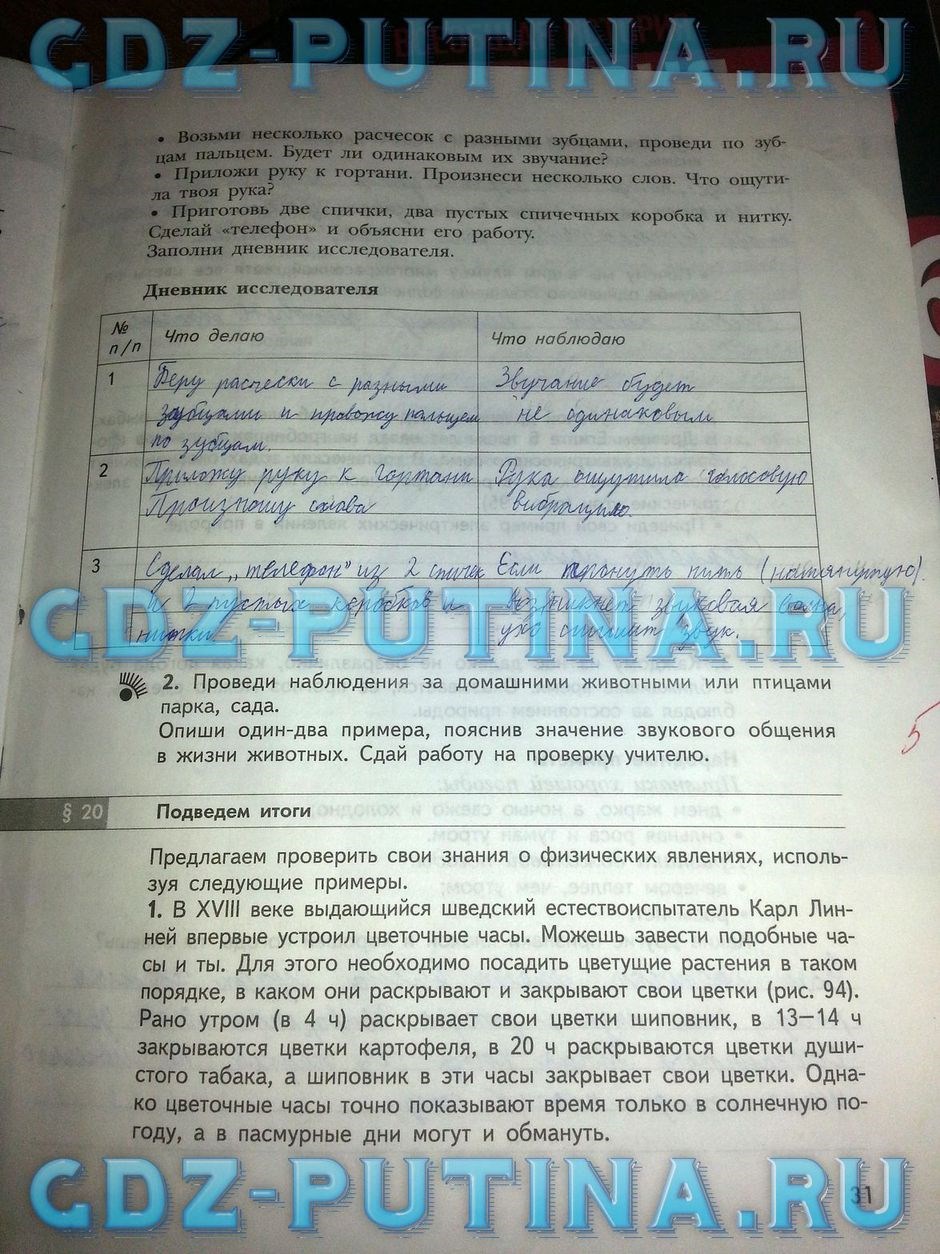 GDZ-PUTINA.RU
• Возьми несколько расчесок с разными зубцами, проведи по зуб-
цам пальцем. Будет ли одинаковым их звучание?
• Приложи руку к гортани. Произнеси несколько слов. Что ощути-
ла твоя рука?
• Приготовь две спички, два пустых спичечных коробка и нитку.
Сделай «телефон» и объясни его работу.
Заполни дневник исследователя.
Дневник исследователя
№ п/п Что делаю Что наблюдаю
1 Беру расчески с разными Звучание будет
зубцами и провожу пальцем не одинаковым
по зубцам.
2 Приложу руку к гортани Рука ощутила голосовую
Произношу слова вибрацию.
3 Сделал „телефон" из 2 спичек Если тронуть нить (натянутую).
и 2 пустых коробков и возникнет звуковая волна,
нитки. ухо слышит звук.
GDZ-PUTINA.RU
2. Проведи наблюдения за домашними животными или птицами
парка, сада.
Опиши один-два примера, пояснив значение звукового общения
в жизни животных. Сдай работу на проверку учителю.
5
§ 20 Подведем итоги
Предлагаем проверить свои знания о физических явлениях, исполь-
зуя следующие примеры.
1. В XVIII веке выдающийся шведский естествоиспытатель Карл Лин-
ней впервые устроил цветочные часы. Можешь завести подобные ча-
сы и ты. Для этого необходимо посадить цветущие растения в таком
порядке, в каком они раскрывают и закрывают свои цветки (рис. 94).
Рано утром (в 4 ч) раскрывает свои цветки шиповник, в 13—14 ч
закрываются цветки картофеля, в 20 ч раскрываются цветки души-
стого табака, а шиповник в эти часы закрывает свои цветки. Одна-
ко цветочные часы точно показывают время только в солнечную по-
году, а в пасмурные дни могут и обмануть.
31
GDZ-PUTINA.RU